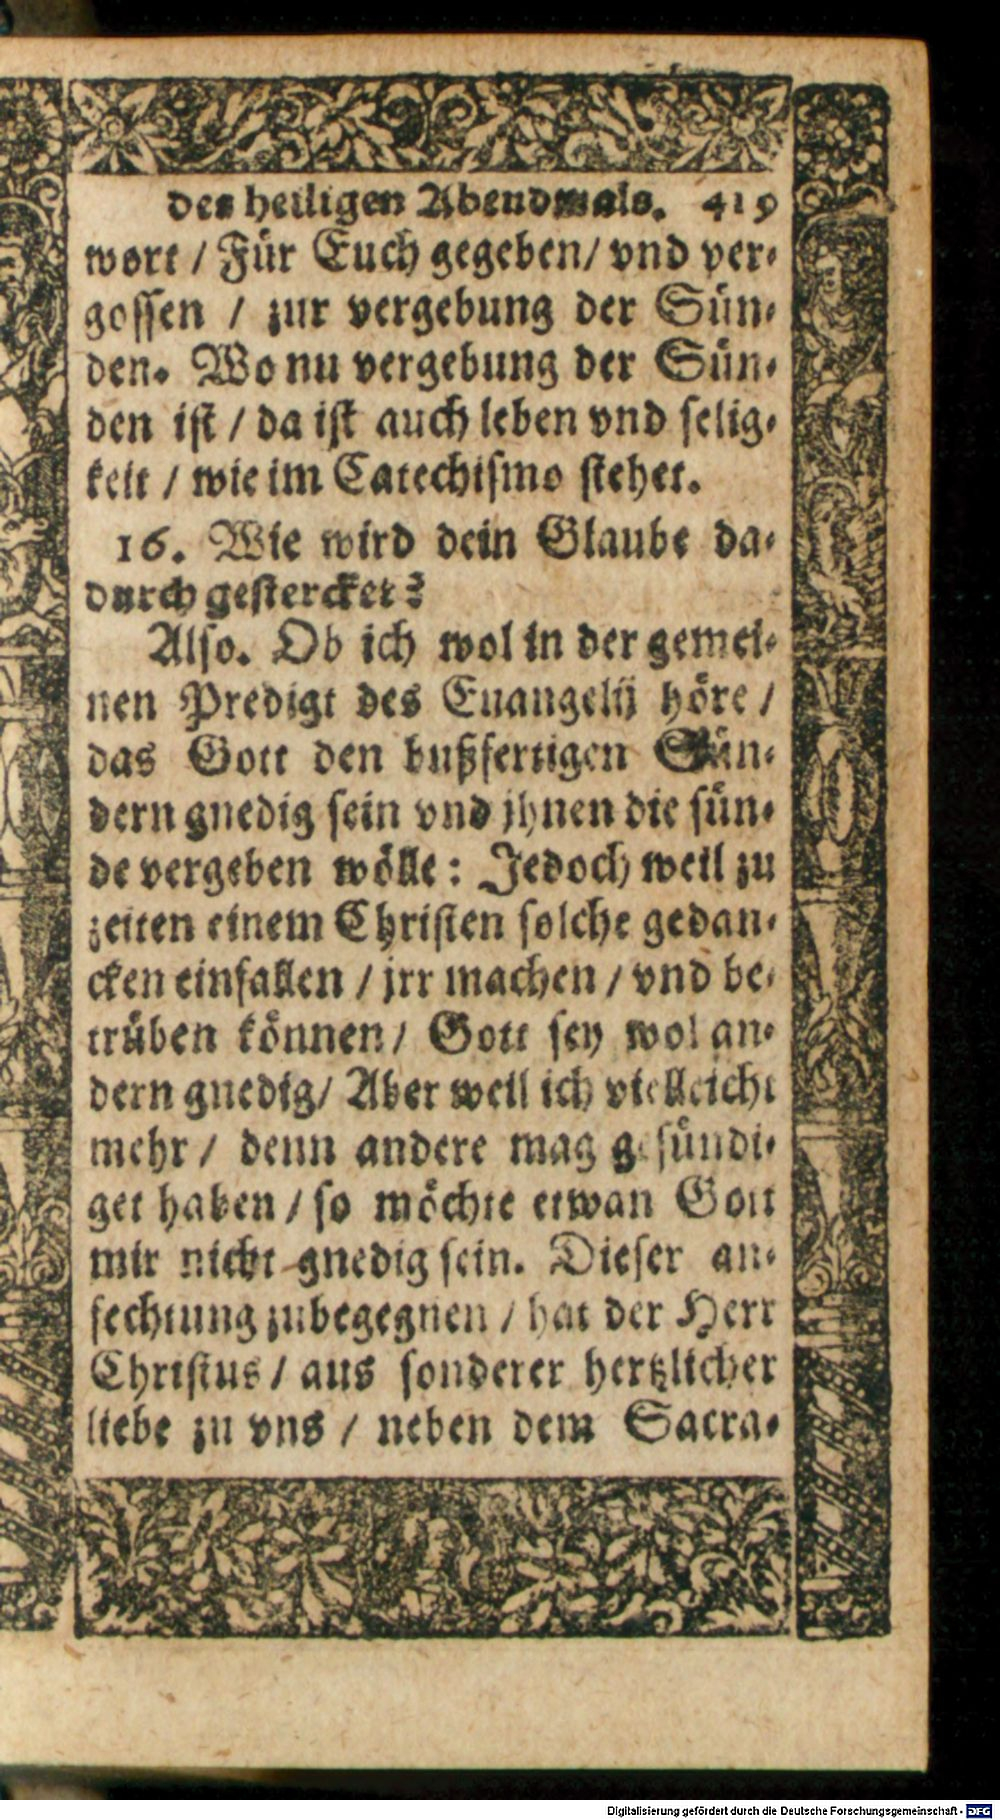 des heiligen Abendmals. 419
wort / Für Euch gegeben / vnd ver-
gossen / zur vergebung der Sün-
den. Wo nu vergebung der Sün-
den ist / da ist auch leben vnd selig-
keit / wie im Catechismo stehet.
16. Wie wird dein Glaube da-
durch gestercket?
Also. Ob ich wol in der gemei-
nen Predigt des Euangelij höre /
das Gott den bußfertigen Sün-
dern gnedig sein vnd jhnen die sün-
de vergeben wölle: Jedoch weil zu
zeiten einem Christen solche gedan-
cken einfallen / jrr machen / vnd be-
trüben können / Gott sey wol an-
dern gnedig / Aber weil ich vielleicht
mehr / denn andere mag gesündi-
get haben / so möchte etwan Gott
mir nicht gnedig sein. Dieser an-
fechtung zubegegnen / hat der Herr
Christus / aus sonderer hertzlicher
liebe zu vns / neben dem Sacra-
Digitalisierung gefördert durch die Deutsche Forschungsgemeinschaft - DFG